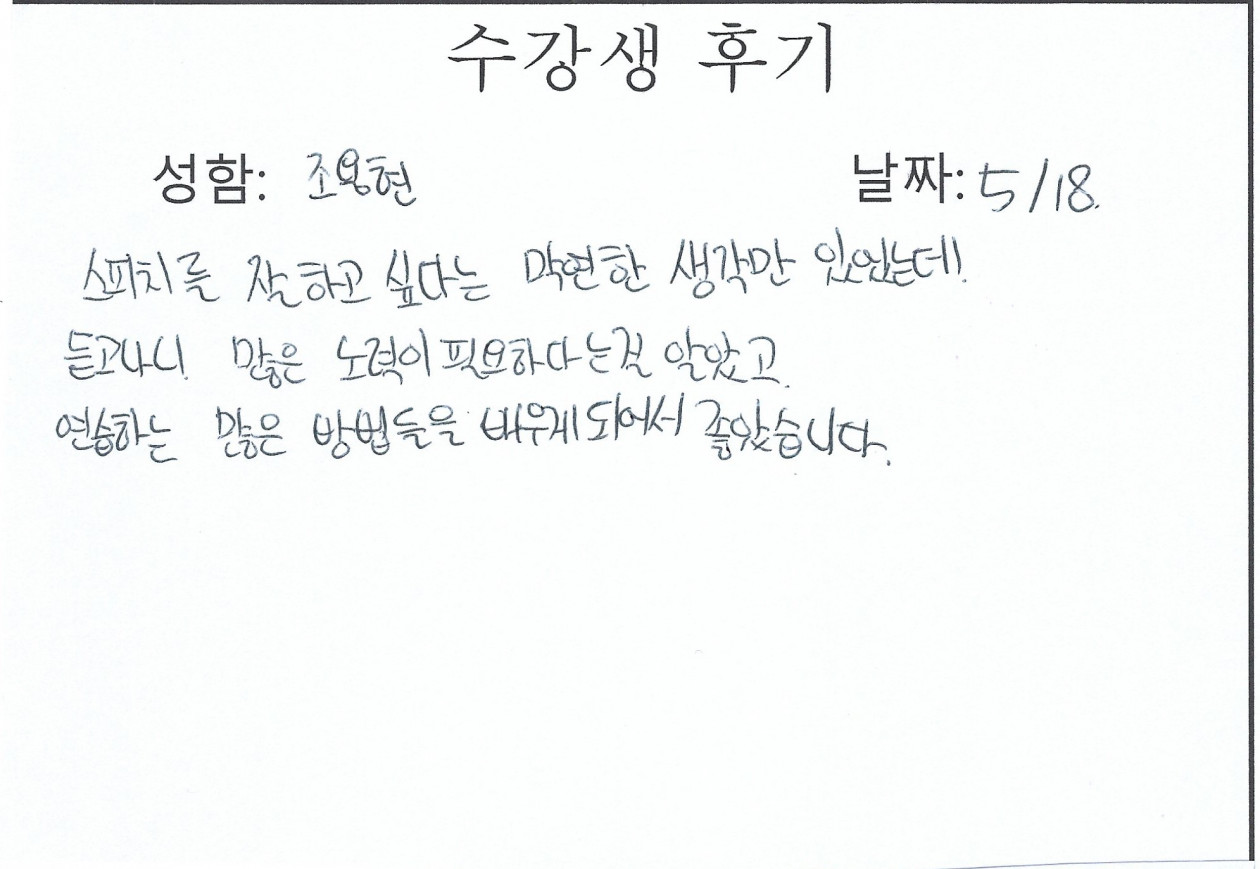 수강생 후기
성함: 조용현 날짜: 5/18.
스피치를 잘하고 싶다는 막연한 생각만 있었는데!
듣고나니 많은 노력이 필요하다는걸 알았고.
연습하는 많은 방법들을 배우게되어서 좋았습니다.